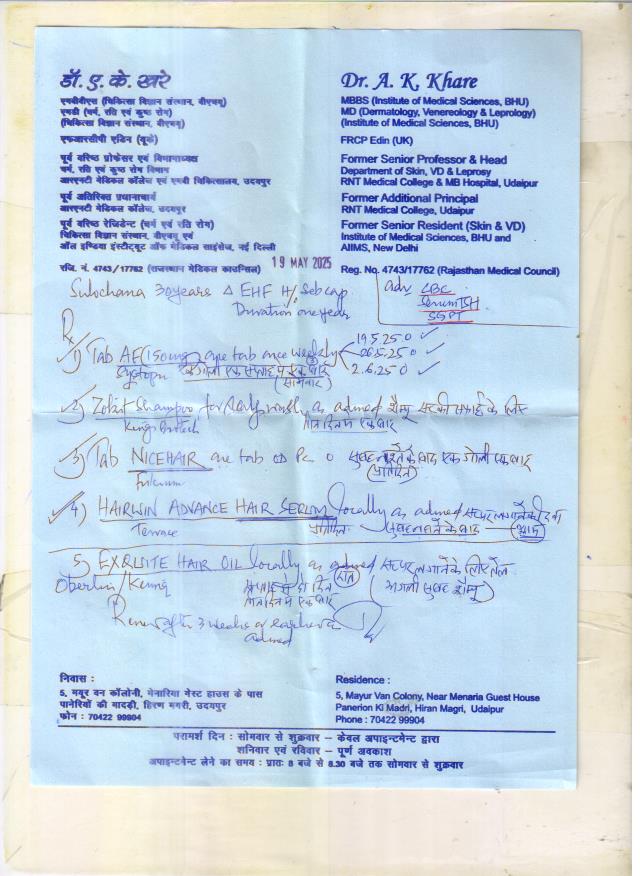 डॉ. ए. के. खरे
एमबीबीएस (चिकित्सा विज्ञान संस्थान, बीएचयू)
एमडी (चर्म, रति एवं कुष्ठ रोग)
(चिकित्सा विज्ञान संस्थान, बीएचयू)
एफआरसीपी एडिन (यूके)
पूर्व वरिष्ठ प्रोफेसर एवं विभागाध्यक्ष
चर्म, रति एवं कुष्ठ रोग विभाग
आरएनटी मेडिकल कॉलेज एवं एमबी चिकित्सालय, उदयपुर
पूर्व अतिरिक्त प्रधानाचार्य
आरएनटी मेडिकल कॉलेज, उदयपुर
पूर्व वरिष्ठ रेजिडेन्ट (चर्म एवं रति रोग)
चिकित्सा विज्ञान संस्थान, बीएचयू एवं
ऑल इण्डिया इंस्टीट्यूट ऑफ मेडिकल साइंसेज, नई दिल्ली
रजि. नं. 4743/17762 (राजस्थान मेडिकल काउन्सिल)
Dr. A. K. Khare
MBBS (Institute of Medical Sciences, BHU)
MD (Dermatology, Venereology & Leprology)
(Institute of Medical Sciences, BHU)
FRCP Edin (UK)
Former Senior Professor & Head
Department of Skin, VD & Leprosy
RNT Medical College & MB Hospital, Udaipur
Former Additional Principal
RNT Medical College, Udaipur
Former Senior Resident (Skin & VD)
Institute of Medical Sciences, BHU and
AIIMS, New Delhi
Reg. No. 4743/17762 (Rajasthan Medical Council)
19 MAY 2025
Sulochana 30 years Δ EHF H/o Seb cap
Duration one year
adv CBC
Serum TSH
SGPT
Rx
1) Tab AF 150mg one tab once weekly
19.5.25 0 ✓
26.5.25 0 ✓
2.6.25 0 ✓
Systopic एक गोली एक सप्ताह में एक बार
(सोमवार)
2) Shampoo for scalp wash as advised
Kings Biotech
3) Tab NICEHAIR one tab OD Pc
(प्रतिदिन)
4) HAIRWIN ADVANCE HAIR SERUM locally as advised
प्रतिदिन
5) EXQUITE HAIR OIL locally as advised
(रात)
Review after 3 weeks or earlier
advised
निवास :
5, मयूर वन कॉलोनी, मेनारिया गेस्ट हाउस के पास
पानेरियों की मादड़ी, हिरण मगरी, उदयपुर
फोन : 70422 99904
Residence :
5, Mayur Van Colony, Near Menaria Guest House
Panerion Ki Madri, Hiran Magri, Udaipur
Phone : 70422 99904
परामर्श दिन : सोमवार से शुक्रवार - केवल अपाइन्टमेन्ट द्वारा
शनिवार एवं रविवार - पूर्ण अवकाश
अपाइन्टमेन्ट लेने का समय : प्रातः 8 बजे से 8.30 बजे तक सोमवार से शुक्रवार